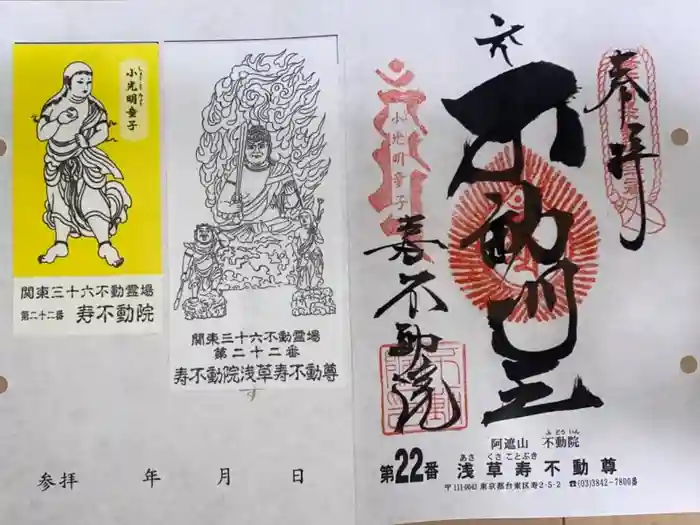 小光明童子
しょうこうみょうどうじ
関東三十六不動霊場
第二十二番 寿不動院
関東三十六不動霊場
第二十二番
寿不動院浅草寿不動尊
参拝 年 月 日
奉拝
不動明王
小光明童子
寿不動院
阿遮山 不動院
ふどういん
第22番 浅草寿不動尊
あさくさことぶき
〒111-0042 東京都台東区寿2-5-2 ☎(03)3842-7800番